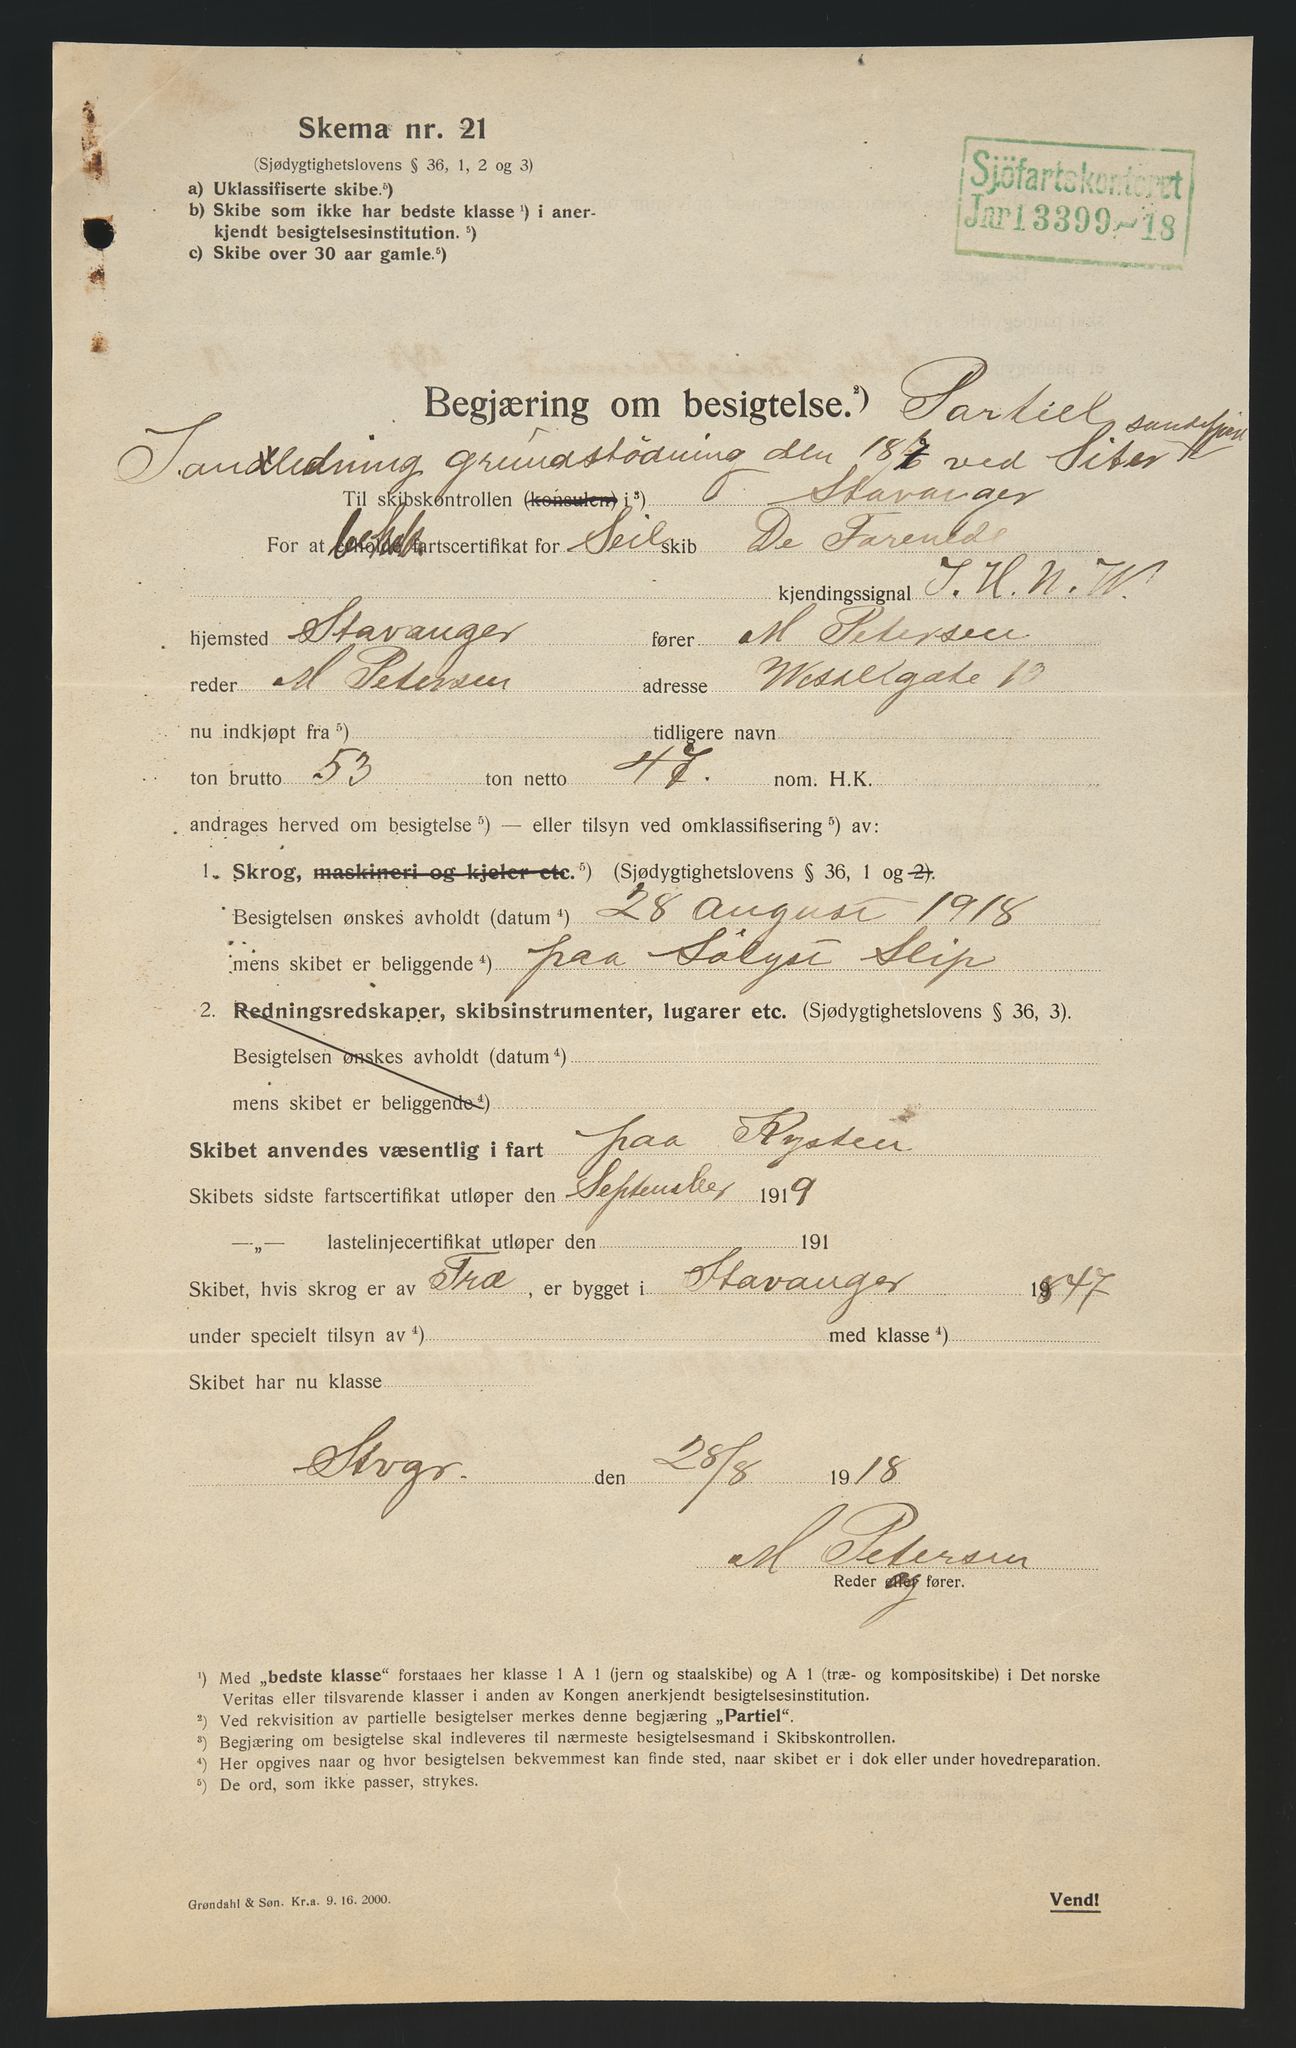 Skema nr. 21
(Sjødygtighetslovens § 36, 1, 2 og 3)
a) Uklassifiserte skibe.⁵)
b) Skibe som ikke har bedste klasse ¹) i aner-
kjendt besigtelsesinstitution. ⁵)
c) Skibe over 30 aar gamle.⁵)
Sjöfartskontoret
Jnr 13399 - 18
Begjæring om besigtelse.²) Partiel
I anledning grundstödning den 18/ ved
Til skibskontrollen (konsulen) i ³) Stavanger
For at fartscertifikat for Seil skib De Farende
kjendingssignal J. H. N. W.
hjemsted Stavanger fører M Petersen
reder M Petersen adresse Wesselgate 10
nu indkjøpt fra ⁵) tidligere navn
ton brutto 53 ton netto 47. nom. H.K.
andrages herved om besigtelse ⁵) — eller tilsyn ved omklassifisering ⁵) av:
1. Skrog, maskineri og kjeler etc. ⁵) (Sjødygtighetslovens § 36, 1 og 2).
Besigtelsen ønskes avholdt (datum ⁴) 28 august 1918
mens skibet er beliggende ⁴) paa Sölyst Slip
2. Redningsredskaper, skibsinstrumenter, lugarer etc. (Sjødygtighetslovens § 36, 3).
Besigtelsen ønskes avholdt (datum ⁴)
mens skibet er beliggende ⁴)
Skibet anvendes væsentlig i fart paa Kysten
Skibets sidste fartscertifikat utløper den September 1919
—„— lastelinjecertifikat utløper den 191
Skibet, hvis skrog er av Træ, er bygget i Stavanger 1847
under specielt tilsyn av ⁴) med klasse ⁴)
Skibet har nu klasse
Stvgr. den 28/8 1918
M Petersen
Reder og fører.
¹) Med „bedste klasse“ forstaaes her klasse 1 A 1 (jern og staalskibe) og A 1 (træ- og kompositskibe) i Det norske
Veritas eller tilsvarende klasser i anden av Kongen anerkjendt besigtelsesinstitution.
²) Ved rekvisition av partielle besigtelser merkes denne begjæring „Partiel“.
³) Begjæring om besigtelse skal indleveres til nærmeste besigtelsesmand i Skibskontrollen.
⁴) Her opgives naar og hvor besigtelsen bekvemmest kan finde sted, naar skibet er i dok eller under hovedreparation.
⁵) De ord, som ikke passer, strykes.
Grøndahl & Søn. Kr.a. 9. 16. 2000.
Vend!